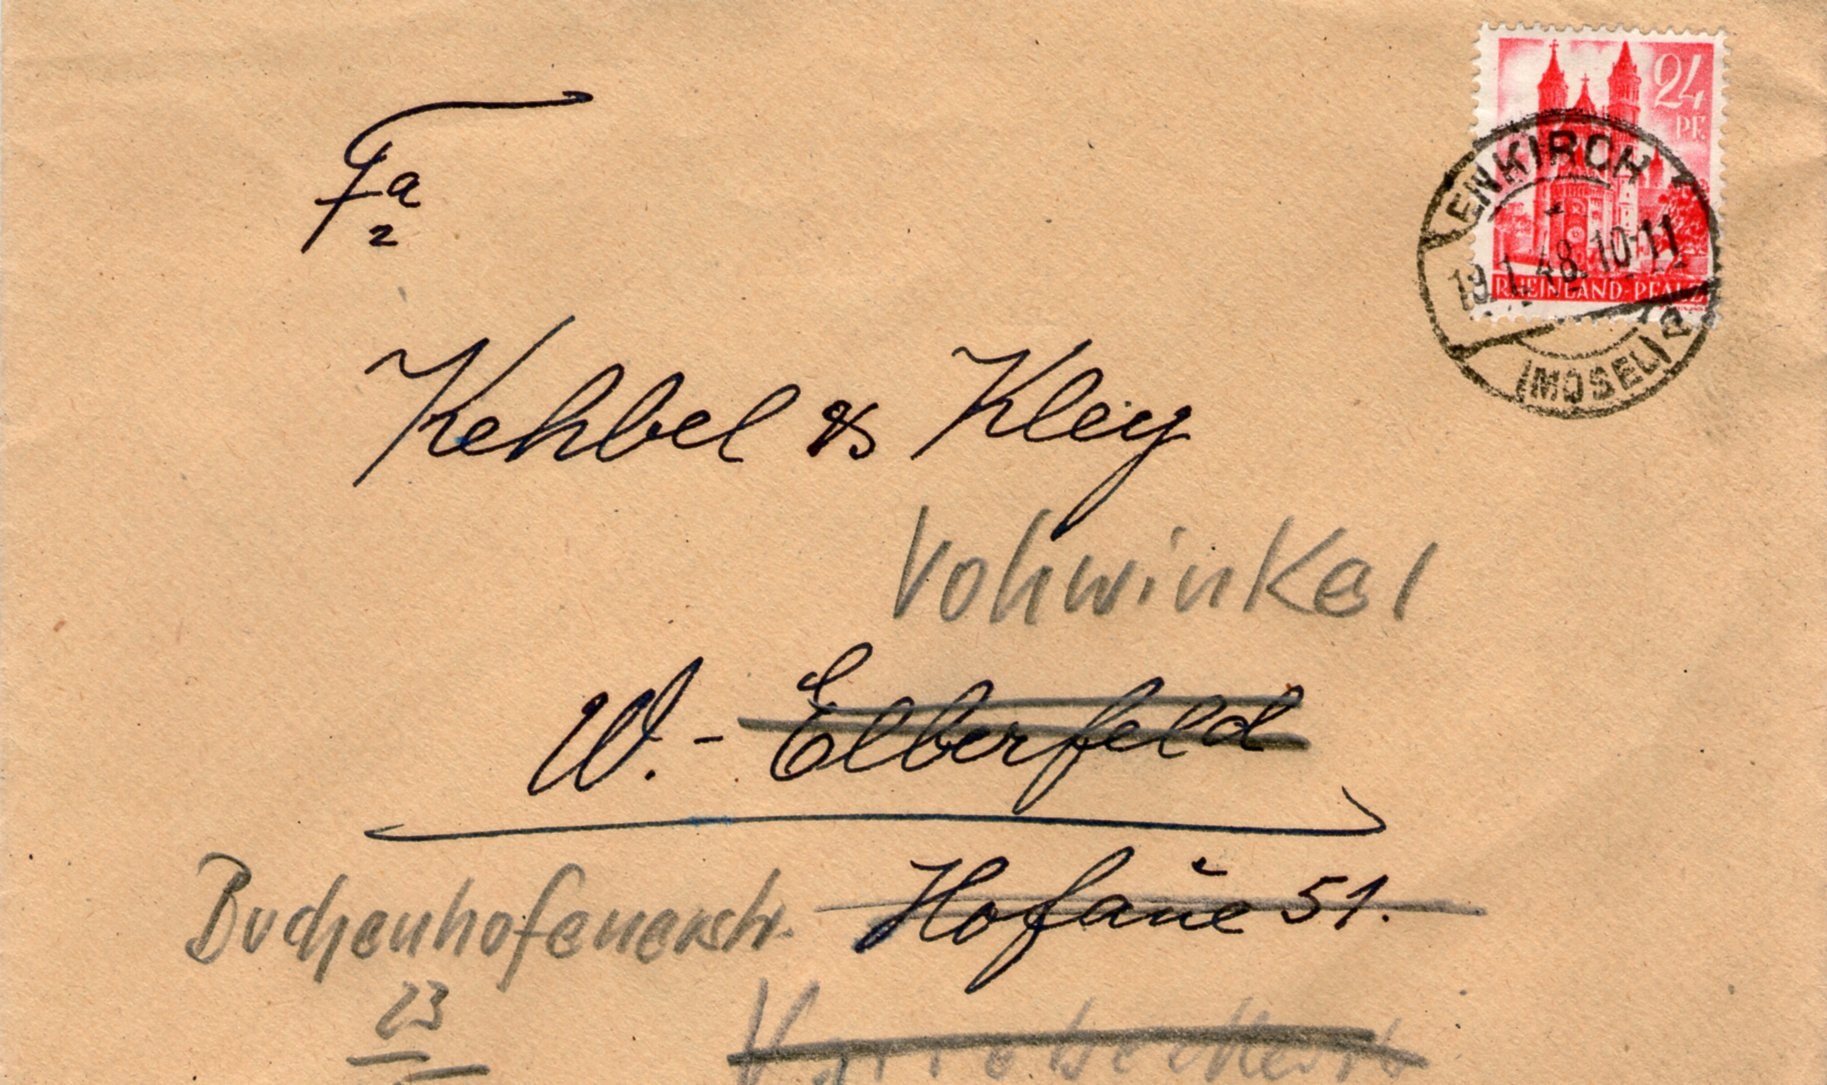 24
PF.
RHEINLAND-PFALZ
ENKIRCH
19.1.48.10-11
(MOSEL)
Fa
Kehbel & Kley
Vohwinkel
W.- Elberfeld
Hofaŭe 51.
Buchenhofenerstr.
23